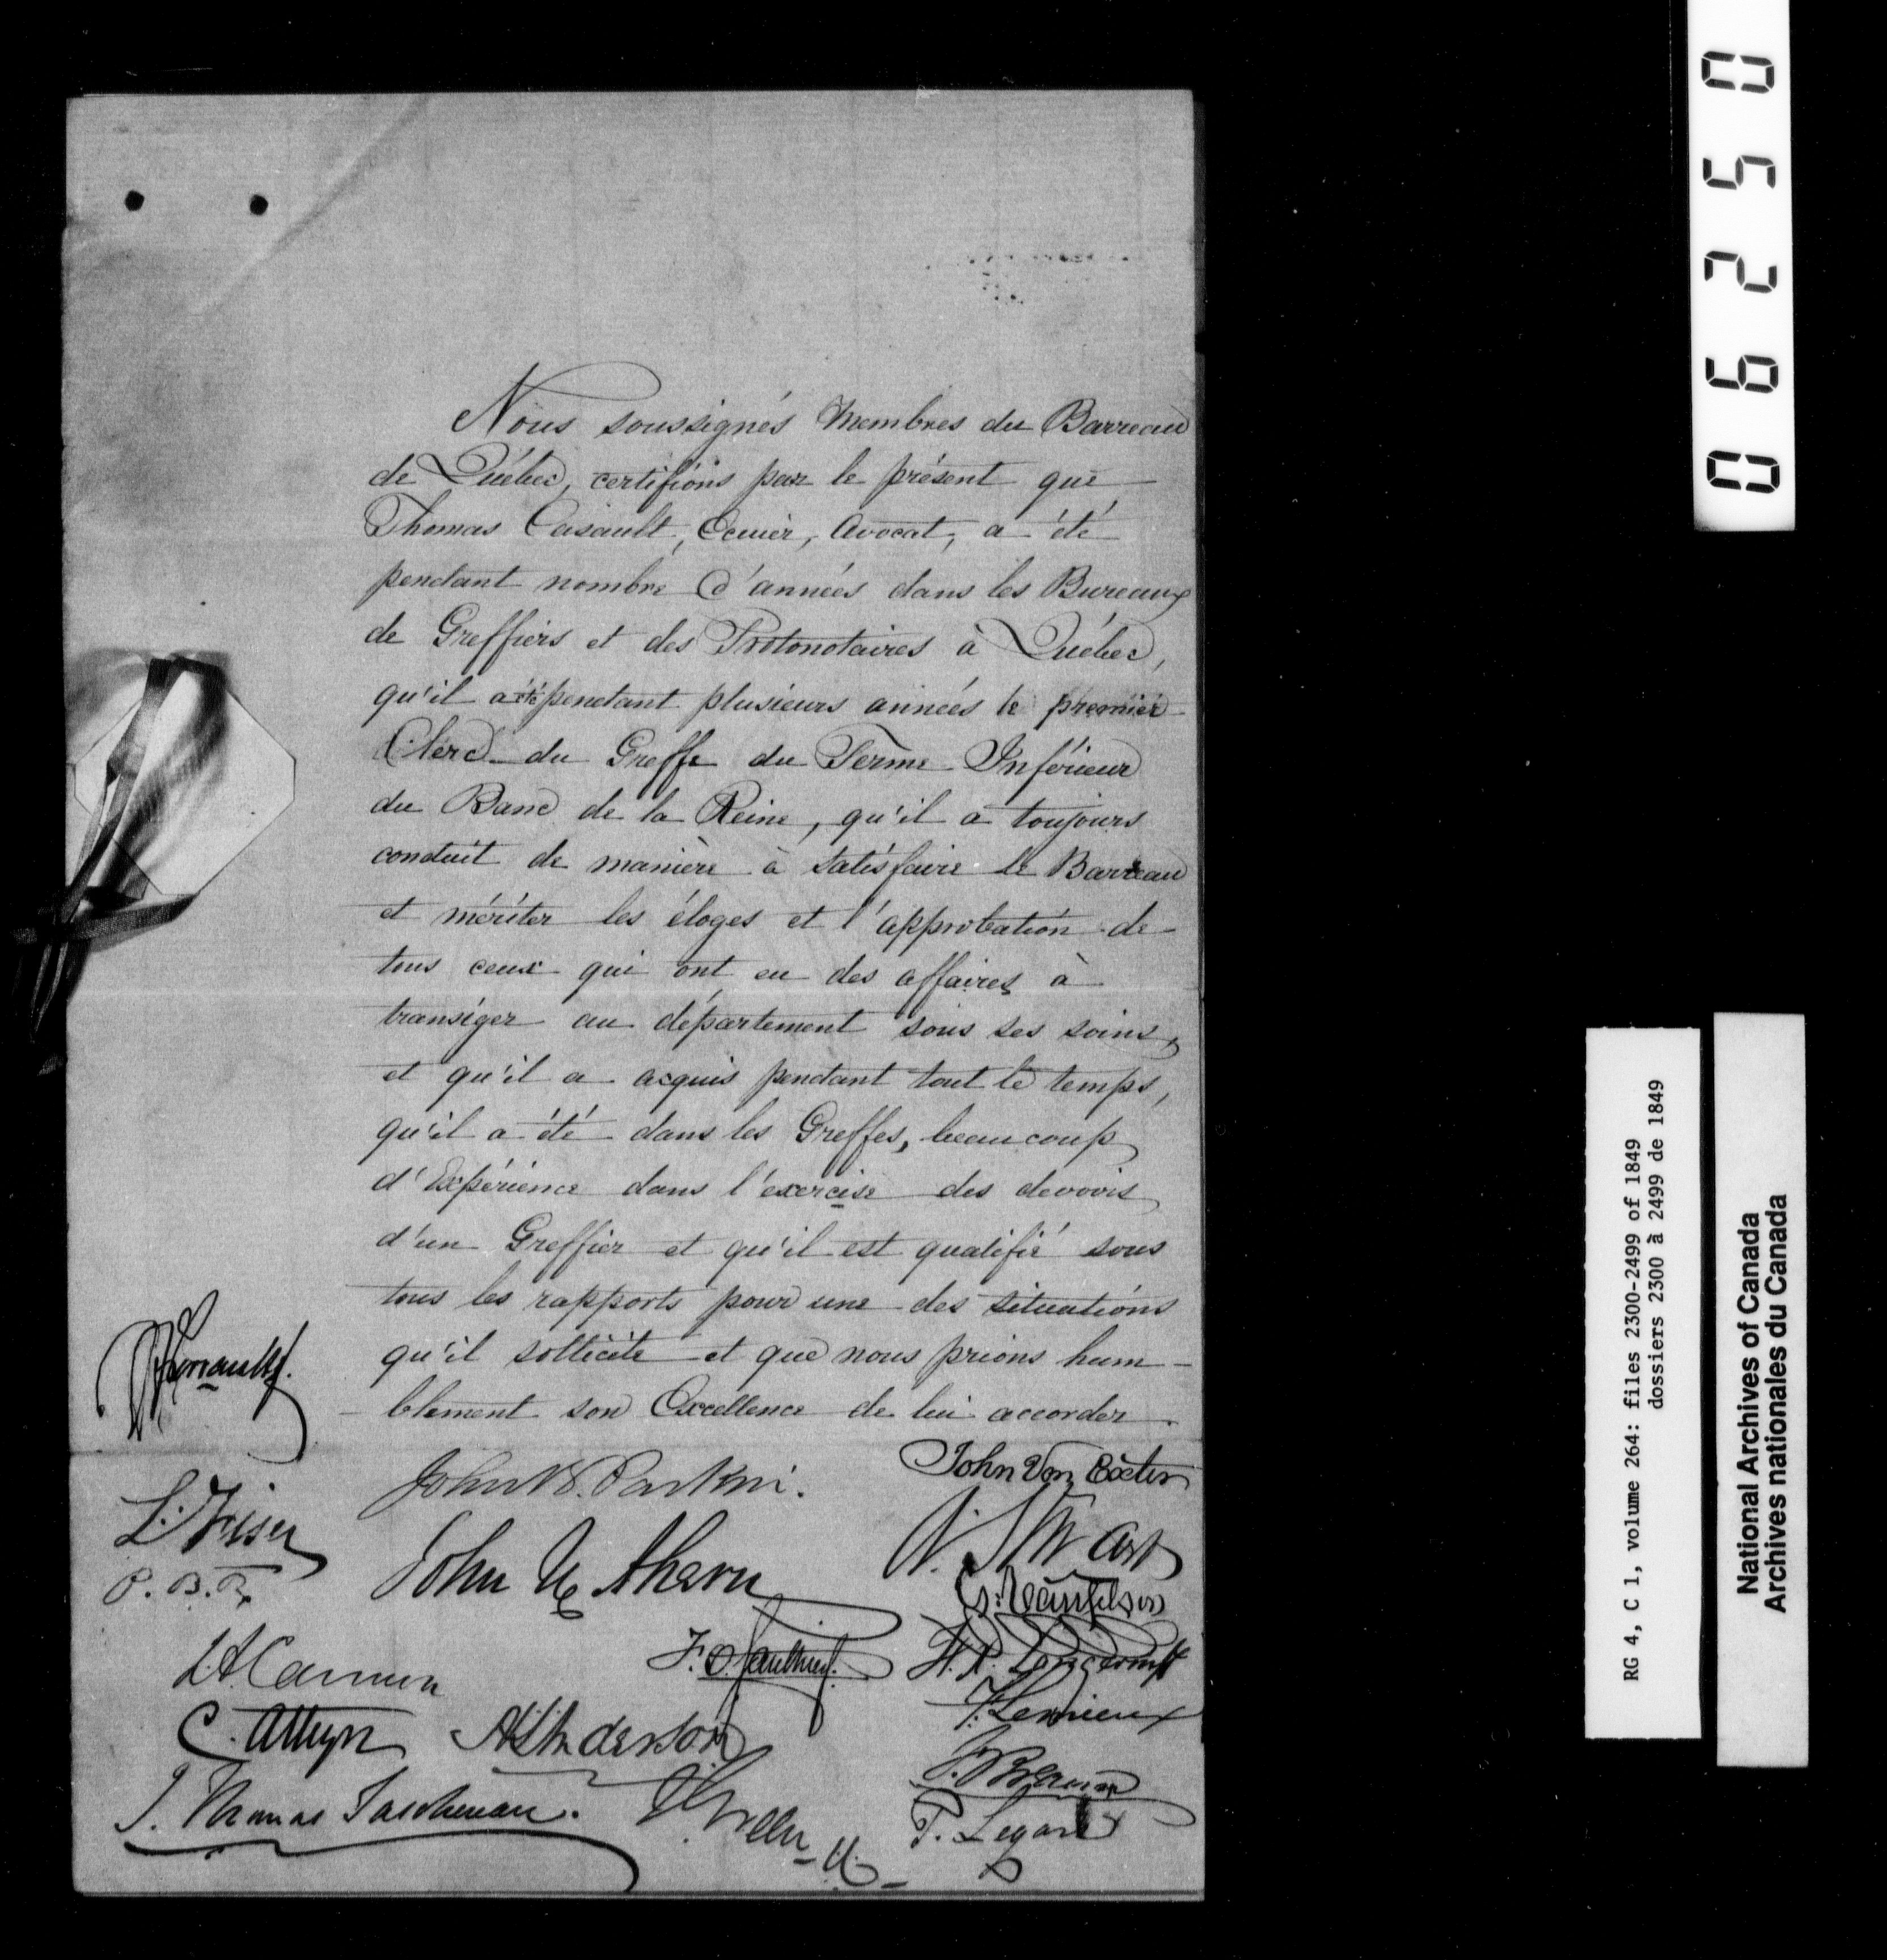 Nous soussignés Membres du Barreau
de Québec, certifions par le présent que
Thomas Casault, Ecuier, Avocat, a été
pendant nombre d'années dans les Bureaux
de Greffiers et des Protonotaires à Québec,
qu'il a été pendant plusieurs années le premier
Clerc du Greffe du Terme Inférieur
du Banc de la Reine, qu'il a toujours
conduit de manière à satisfaire le Barreau
et mériter les éloges et l'approbation de
tous ceux qui ont eu des affaires à
transiger au département sous ses soins,
et qu'il a acquis pendant tout le temps,
qu'il a été dans les Greffes, beaucoup
d'Expérience dans l'exercise des devoirs
d'un Greffier et qu'il est qualifié sous
tous les rapports pour une des situations
qu'il sollicite et que nous prions hum-
blement son Excellence de lui accorder.
John Von Exeter
John U. Ahern
P. B. R.
F. O. Gauthier
F. Lemieux
C. Alleyn
Anderson
J. Thomas Taschereau.
P. Legaré
06250
RG 4, C 1, volume 264: files 2300-2499 of 1849
dossiers 2300 à 2499 de 1849
National Archives of Canada
Archives nationales du Canada